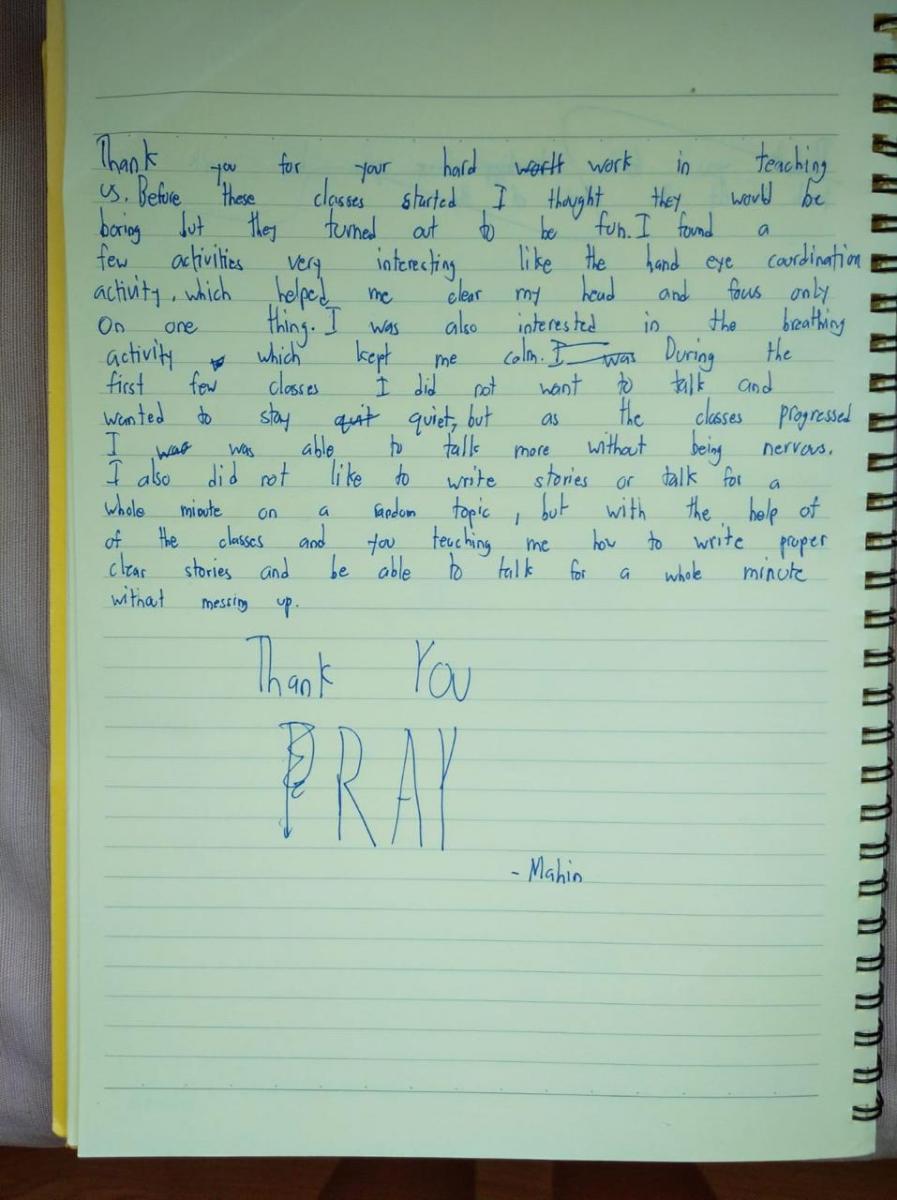 Thank you for your hard wortt work in teaching
us. Before these classes started I thought they would be
boring but they turned out to be fun. I found a
few activities very interesting like the hand eye coordination
activity, which helped me clear my head and focus only
On one thing. I was also interested in the breathing
activity which kept me calm. I was During the
first few classes I did not want to talk and
wanted to stay quit quiet, but as the classes progressed
I was was able to talk more without being nervous.
I also did not like to write stories or talk for a
whole minute on a random topic, but with the help of
of the classes and you teaching me how to write proper
clear stories and be able to talk for a whole minute
without messing up.
Thank You
PRAY
- Mahin